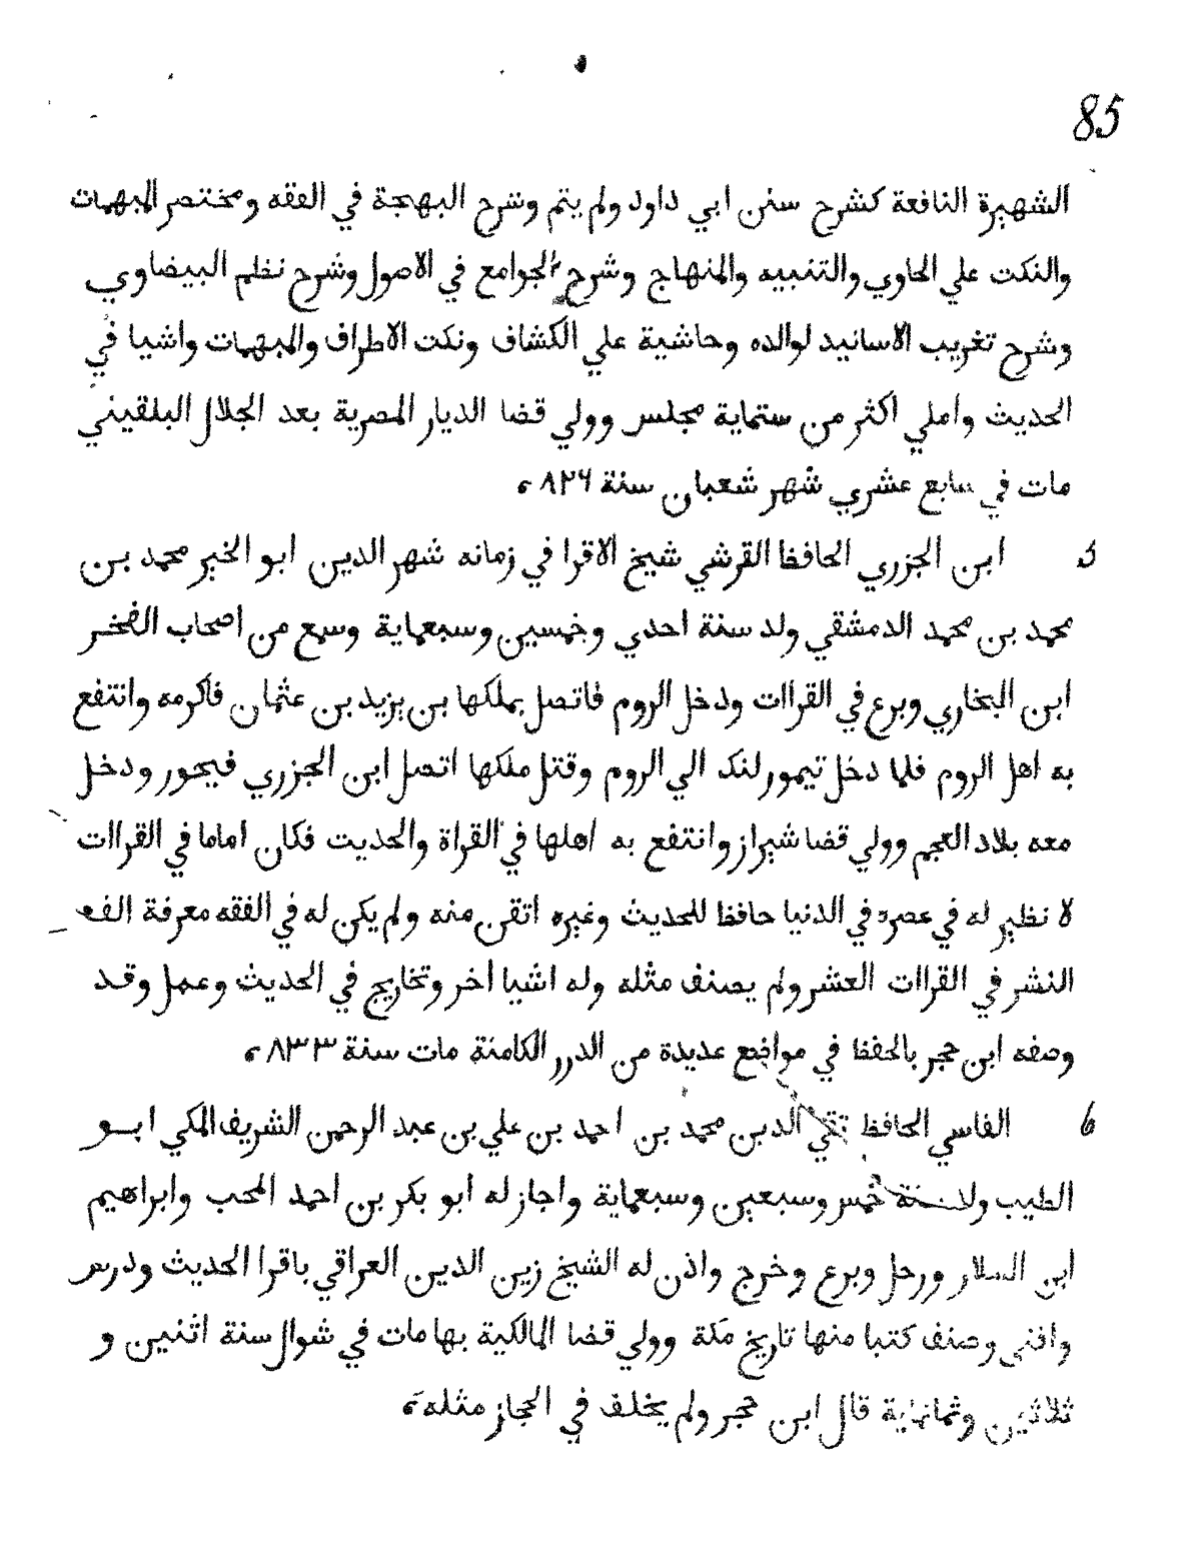 85
الشهيرة النافعة كشرح سنن ابي داود ولم يتم وشرح البهجة في الفقه ومختصر المبهمات
والنكت علي الحاوي والتنبيه والمنهاج وشرح الجوامع في الاصول وشرح نظم البيضاوي
وشرح تغريب الاسانيد لوالده وحاشية علي الكشاف ونكت الاطراف والمبهمات واشيا في
الحديث واملي اكثر من ستماية مجلس وولي قضا الديار المصرية بعد الجلال البلقيني
مات في سابع عشري شهر شعبان سنة ٨٢٦
5 ابن الجزري الحافظ القرشي شيخ الاقرا في زمانه شهر الدين ابو الخير محمد بن
محمد بن محمد الدمشقي ولد سنة احدي وخمسين وسبعماية وسمع من اصحاب الفخر
ابن البخاري وبرع في القراات ودخل الروم فاتصل بملكها بن يزيد بن عثمان فاكرمه وانتفع
به اهل الروم فلما دخل تيمورلنك الي الروم وقتل ملكها اتصل ابن الجزري فيحور ودخل
معه بلاد العجم وولي قضا شيراز وانتفع به اهلها في القراة والحديث فكان اماما في القراات
لا نظير له في عصره في الدنيا حافظا للحديث وغيره اتقن منه ولم يكن له في الفقه معرفة الف
النشر في القراات العشر ولم يصنف مثله وله اشيا أخر وتخاريج في الحديث وعمل وقد
وصفه ابن حجر بالحفظ في مواضع عديدة من الدرر الكامنة مات سنة ٨٣٣
6 الفاسي الحافظ تقي الدين محمد بن احمد بن علي بن عبد الرحمن الشريف المكي ابو
الطيب ولد سنة خمس وسبعين وسبعماية واجاز له ابو بكر بن احمد المحب وابراهيم
ابن السلار ورحل وبرع وخرج واذن له الشيخ زين الدين العراقي باقرا الحديث ودرس
وافتى وصنف كتبا منها تاريخ مكة وولي قضا المالكية بها مات في شوال سنة اثنين و
ثلاثين وثمانماية قال ابن حجر ولم يخلف في الحجاز مثله